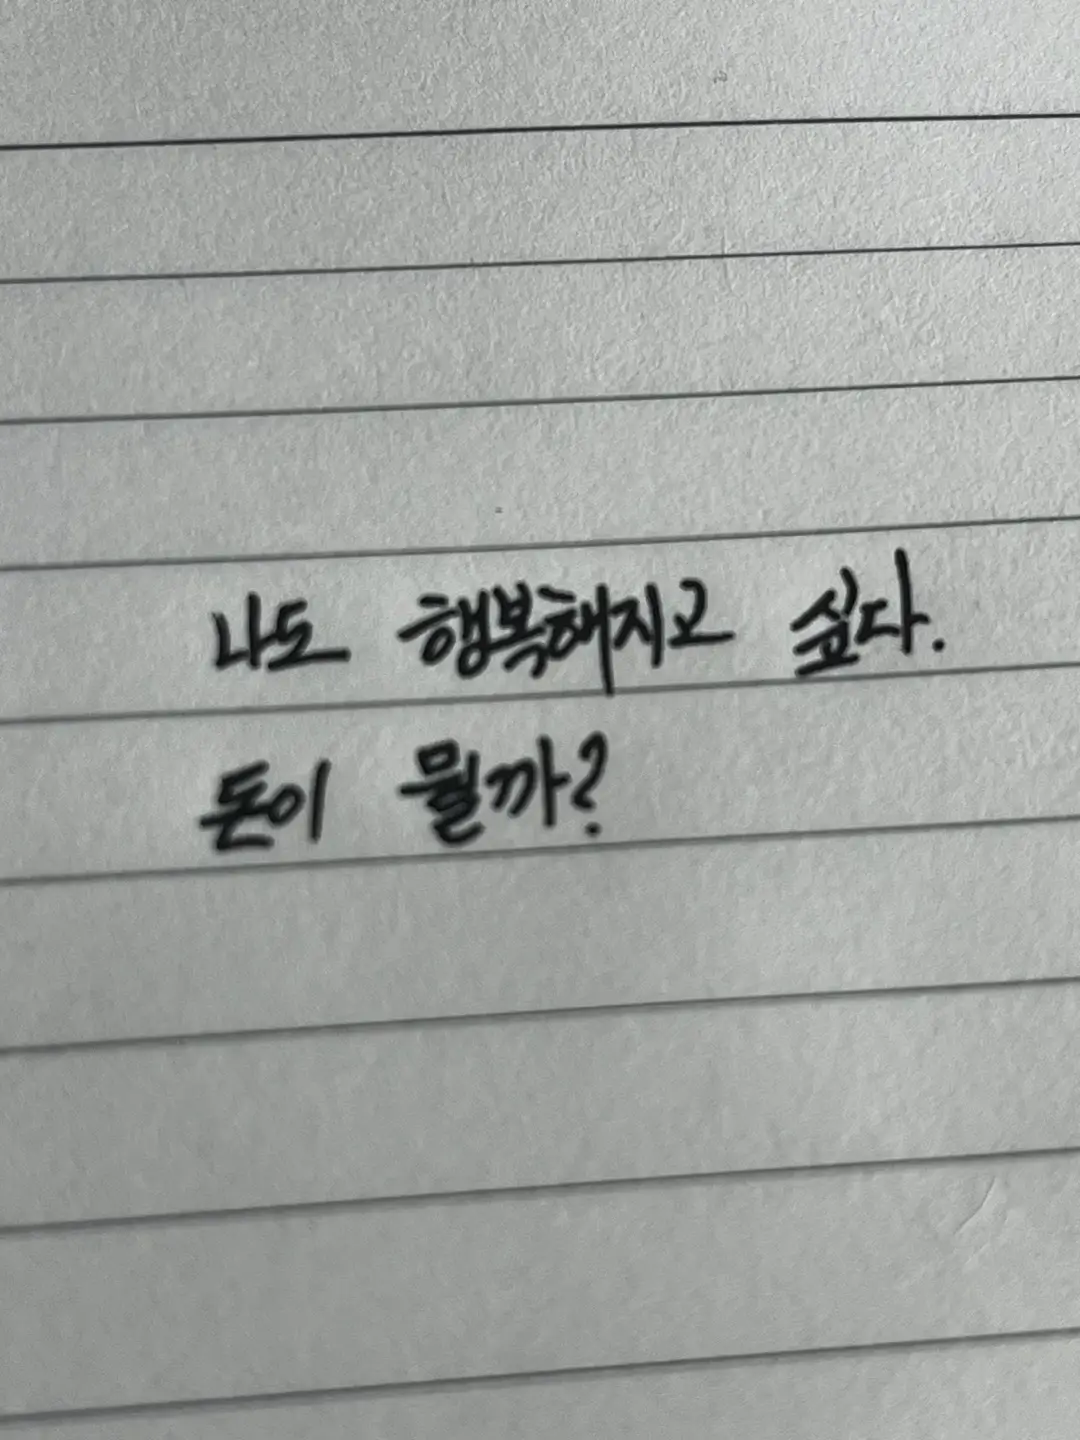 나도 행복해지고 싶다.
돈이 뭘까?